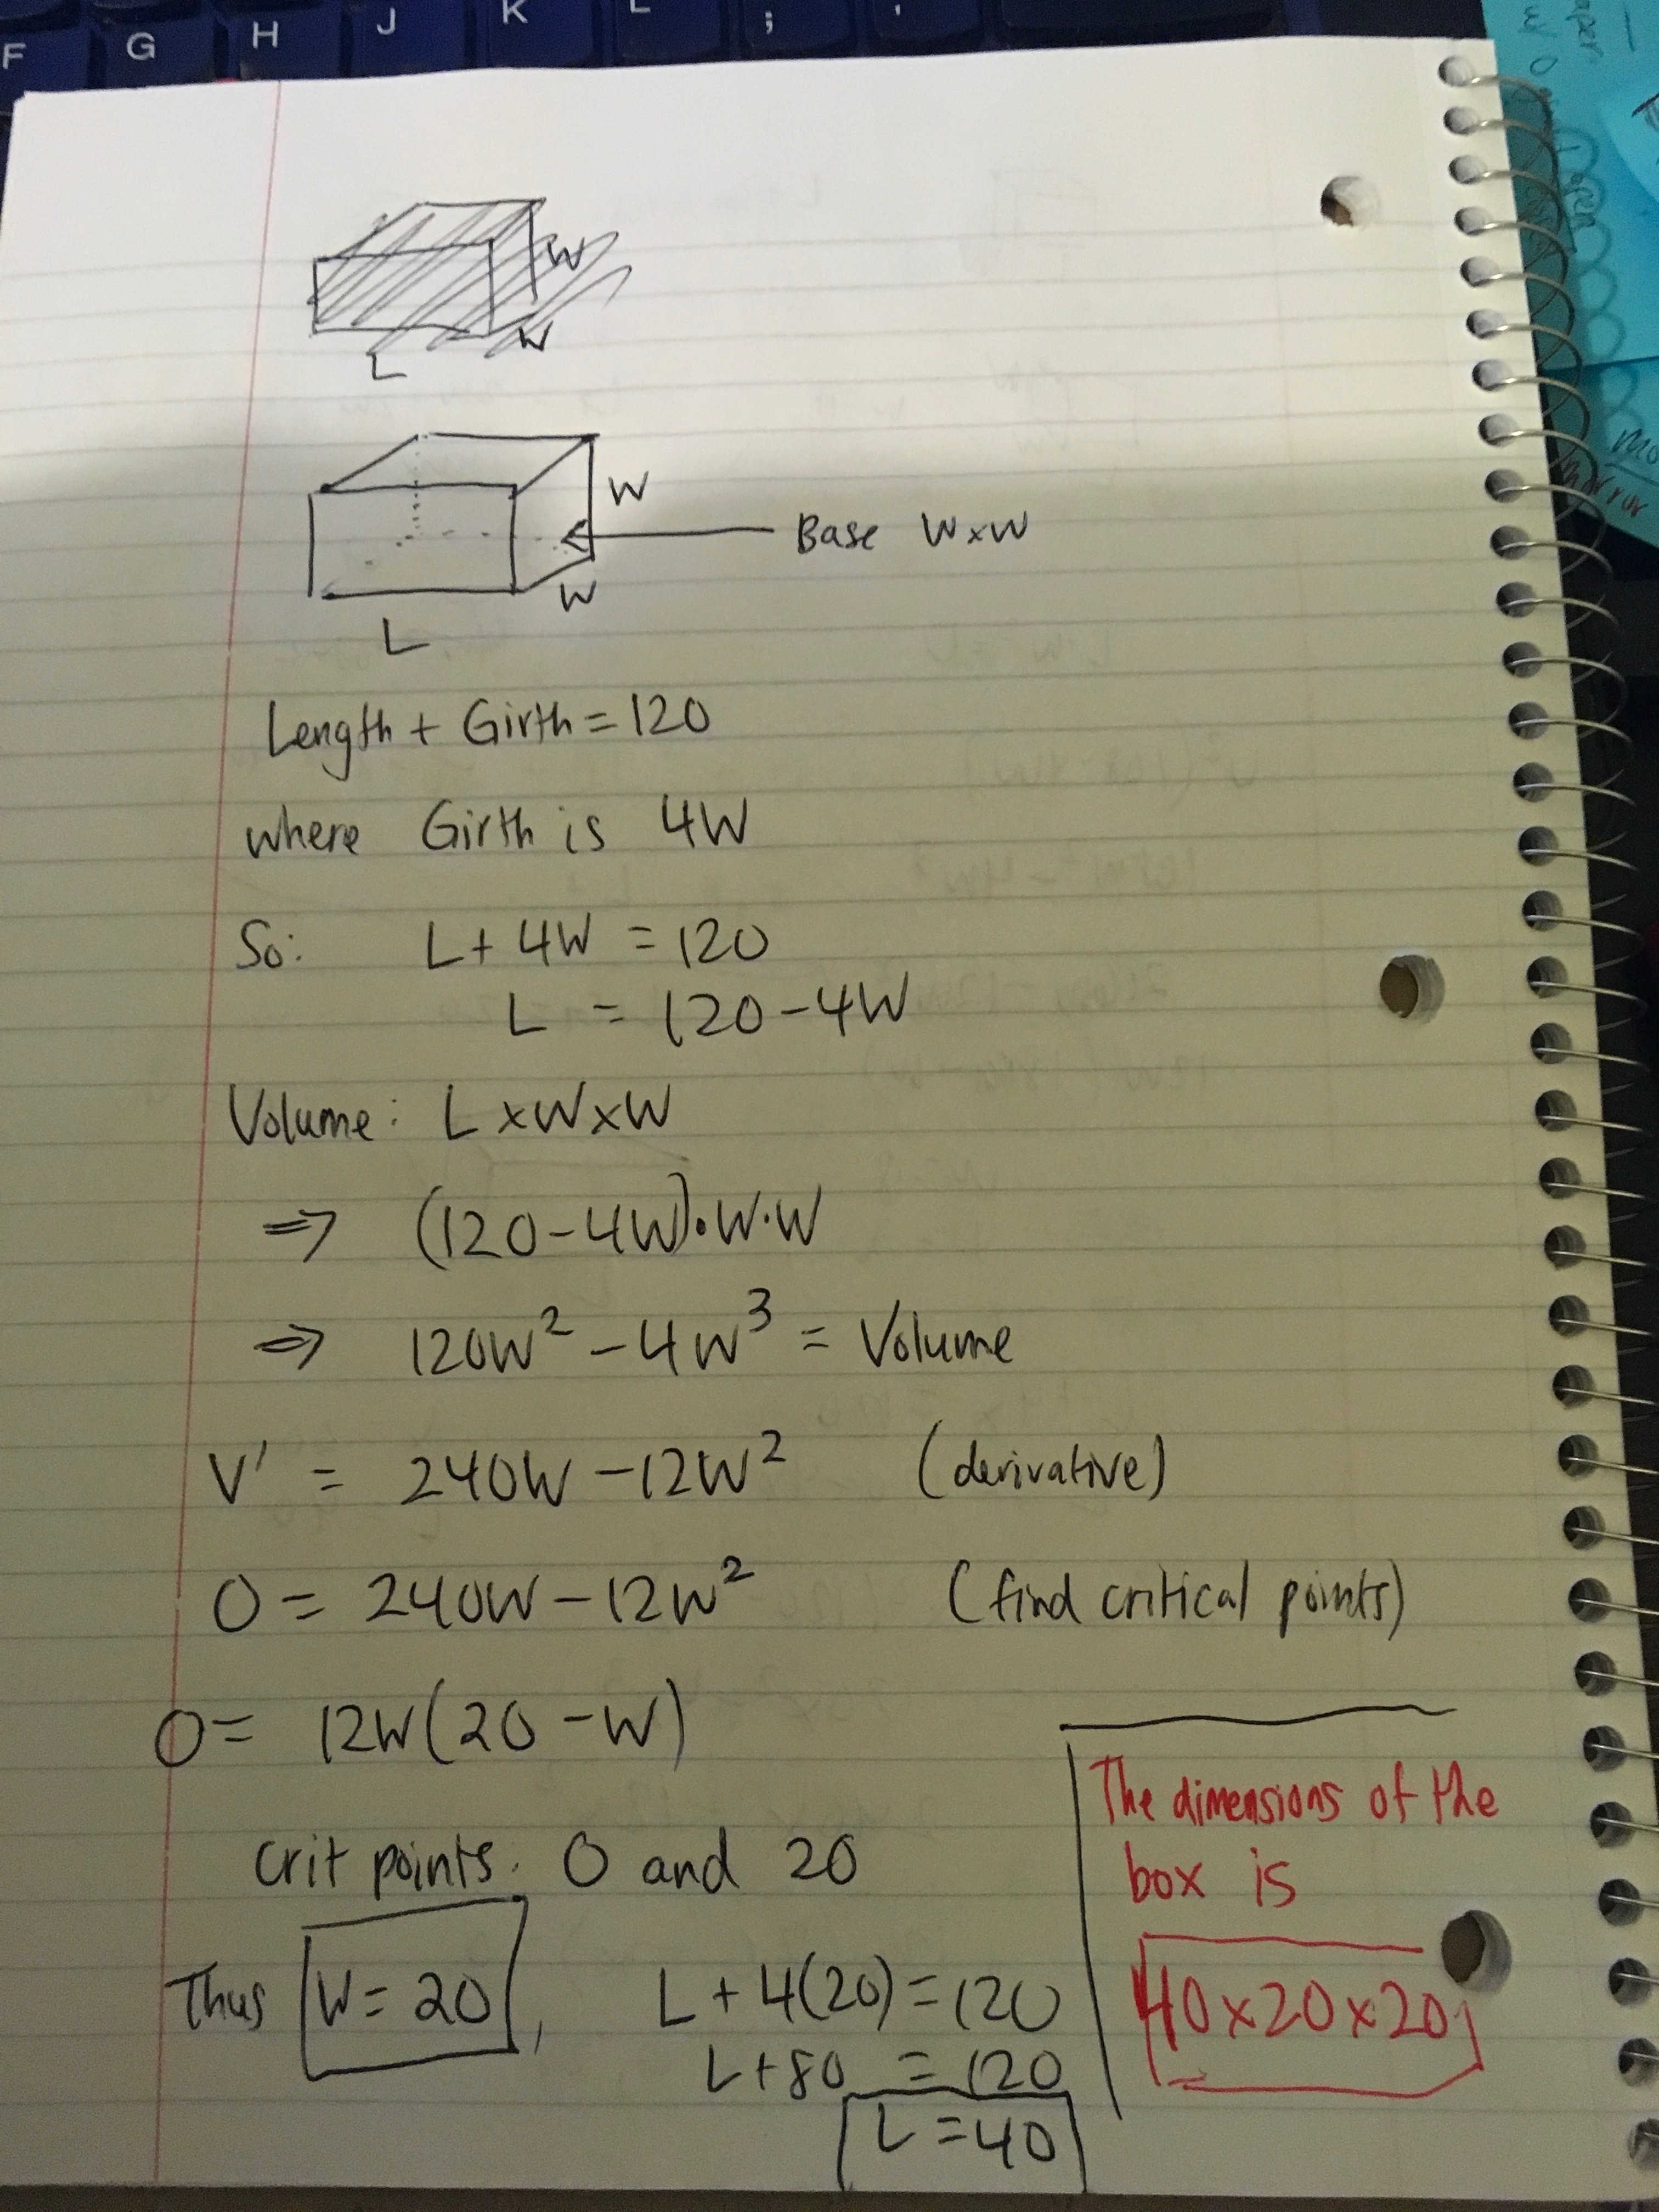 F G H J K L ; '
W
W
L
W
Base W×W
W
L
Length + Girth = 120
where Girth is 4W
So: L + 4W = 120
L = 120 - 4W
Volume: L × W × W
⇒ (120 - 4W)•W•W
⇒ 120W² - 4W³ = Volume
V' = 240W - 12W² (derivative)
0 = 240W - 12W² (find critical points)
0 = 12W(20 - W)
Crit points: 0 and 20
Thus W = 20, L + 4(20) = 120
L + 80 = 120
L = 40
The dimensions of the
box is
40×20×20